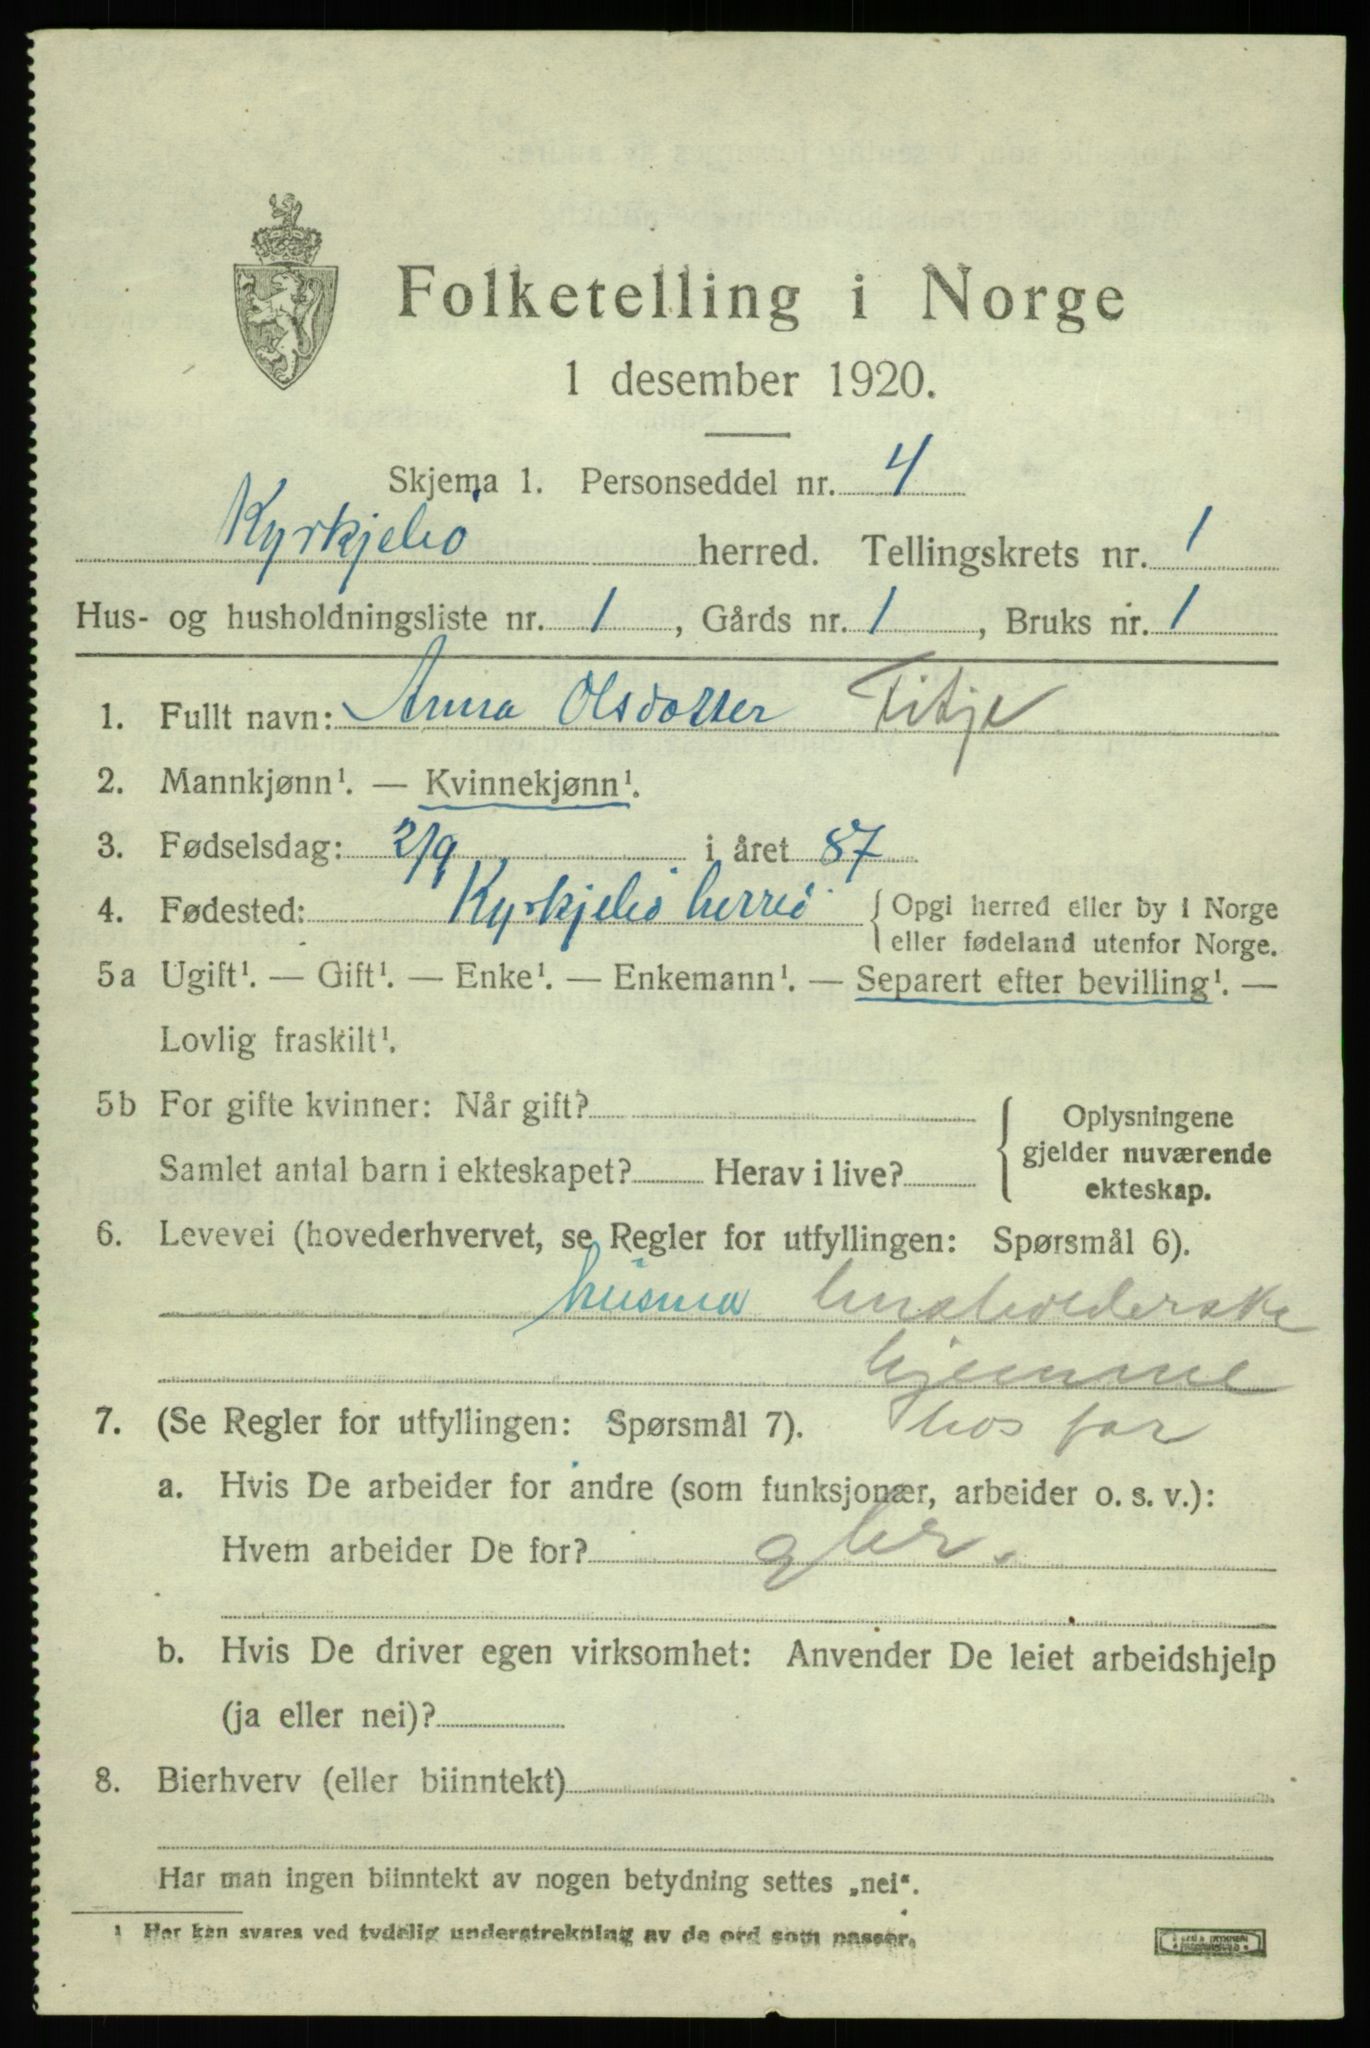 Folketelling i Norge
1 desember 1920.
Skjema 1. Personseddel nr. 4
Kyrkjebö herred. Tellingskrets nr. 1
Hus- og husholdningsliste nr. 1, Gårds nr. 1, Bruks nr. 1
1. Fullt navn: Anna Olsdotter Fitje
2. Mannkjønn¹. — Kvinnekjønn¹.
3. Fødselsdag: 2/9 i året 87
4. Fødested: Kyrkjebö herred { Opgi herred eller by i Norge
eller fødeland utenfor Norge.
5a Ugift¹. — Gift¹. — Enke¹. — Enkemann¹. — Separert efter bevilling¹. —
Lovlig fraskilt¹.
5b For gifte kvinner: Når gift? { Oplysningene
gjelder nuværende
Samlet antal barn i ekteskapet? Herav i live?
ekteskap.
6. Levevei (hovederhvervet, se Regler for utfyllingen: Spørsmål 6).
husmo husholderske
hjemme
7. (Se Regler for utfyllingen: Spørsmål 7). hos far
a. Hvis De arbeider for andre (som funksjonær, arbeider o. s. v.):
Hvem arbeider De for? gbr.
b. Hvis De driver egen virksomhet: Anvender De leiet arbeidshjelp
(ja eller nei)?
8. Bierhverv (eller biinntekt)
Har man ingen biinntekt av nogen betydning settes „nei“.
¹ Her kan svares ved tydelig understrekning av de ord som passer.